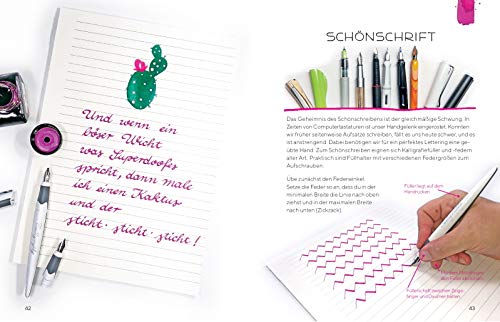 Und wenn ein
böser Wicht
was Superdoofes
spricht, dann male
ich einen Kaktus
und der
sticht · sticht · sticht!
42
SCHÖNSCHRIFT
Das Geheimnis des Schönschreibens ist der gleichmäßige Schwung. In
Zeiten von Computertastaturen ist unser Handgelenk eingerostet. Konnten
wir früher seitenweise Aufsätze schreiben, fällt es uns heute schwer, und es
ist anstrengend. Dabei benötigen wir für ein perfektes Lettering eine ge-
übte Hand. Zum Schönschreiben eignen sich Kalligrafiefüller und -federn
aller Art. Praktisch sind Füllhalter mit verschiedenen Federgrößen zum
Aufschrauben.
Übe zunächst den Federwinkel.
Setze die Feder so an, dass du in der
minimalen Breite die Linie nach oben
ziehst und in der maximalen Breite
nach unten (Zickzack).
Füller liegt auf dem
Handrücken.
Füllerschaft zwischen Zeige-
finger und Daumen halten.
43